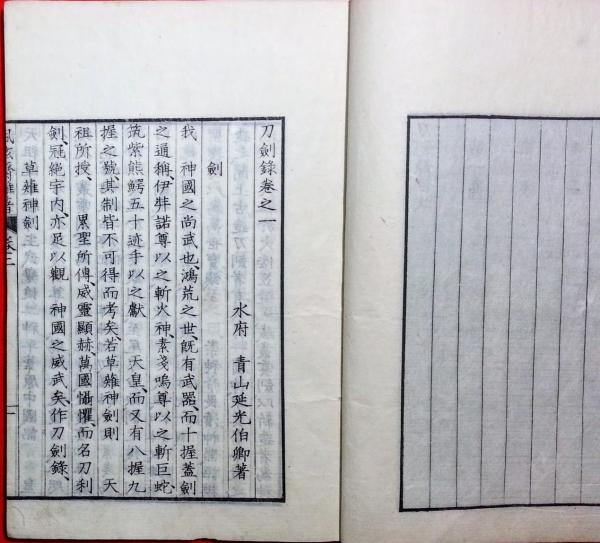 刀劍錄卷之一
水府　青山延光伯卿著
劍
我　神國之尚武也、鴻荒之世、既有武器、而十握蓋劍
之通稱、伊弉諾尊以之斬火神、素戔嗚尊以之斬巨蛇、
筑紫熊鰐五十迹手以之獻　天皇、而又有八握九
握之號、其制皆不可得而考矣、若草薙神劍則　天
祖所授、　累聖所傳、威靈顯赫、萬國懾懼、而名刀利
劍、冠絕宇內、亦足以觀　神國之威武矣、作刀劍錄、
草薙神劍
卷三